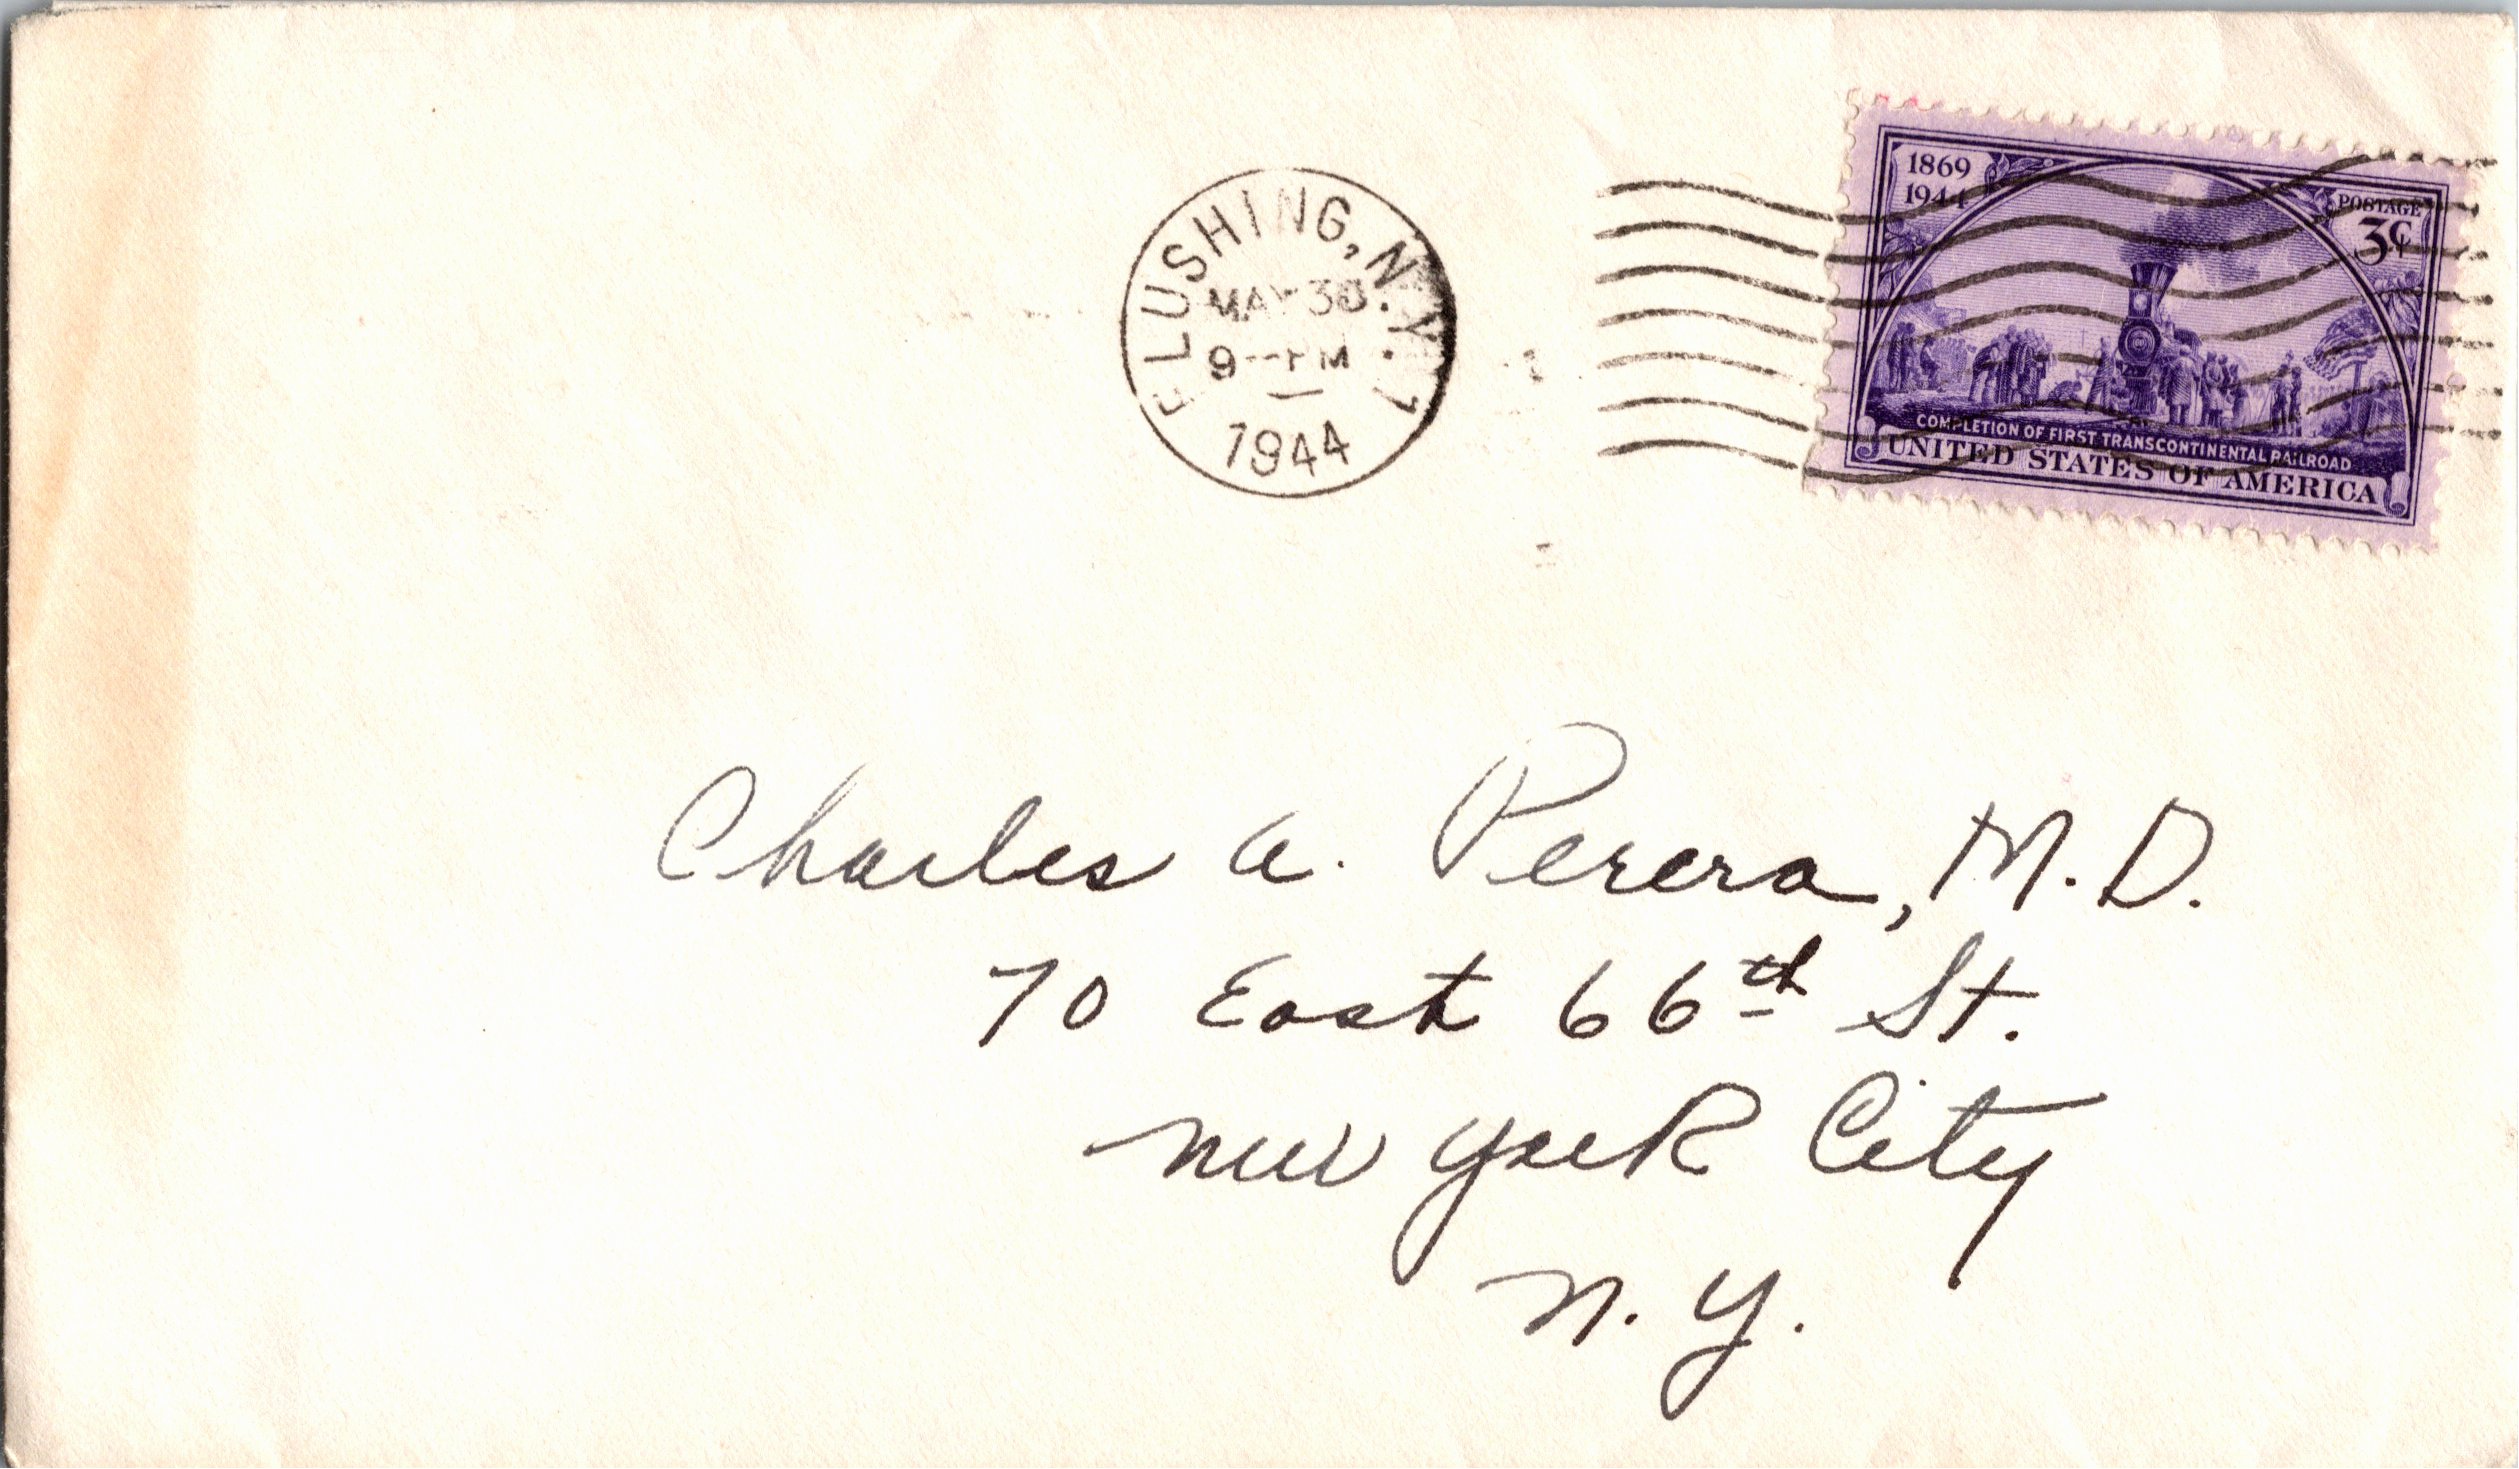 FLUSHING, N.Y. 1
MAY 30
9--PM
1944
1869
1944
POSTAGE
3¢
COMPLETION OF FIRST TRANSCONTINENTAL RAILROAD
UNITED STATES OF AMERICA
Charles A. Perera, M.D.
70 East 66th St.
New York City
N.Y.